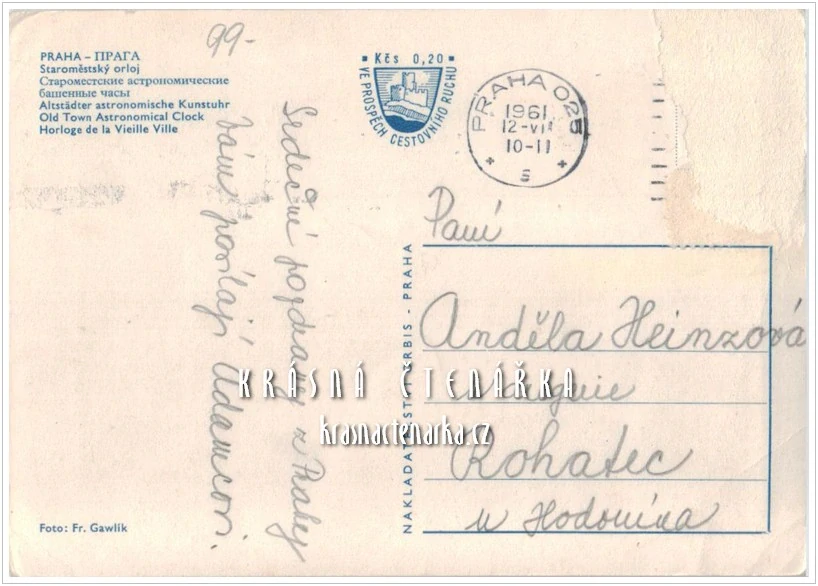 99-
PRAHA – ПРАГА
Staroměstský orloj
Староместские астрономические
башенные часы
Altstädter astronomische Kunstuhr
Old Town Astronomical Clock
Horloge de la Vieille Ville
Kčs 0,20
VE PROSPĚCH CESTOVNÍHO RUCHU
PRAHA 025
1961
12-VII
10-11
s
Srdečné pozdravy z Prahy
Vám posílají Adamcovi.
NAKLADATELSTVÍ ORBIS - PRAHA
Paní
Anděla Heinzová
Rohatec
u Hodonína
KRÁSNÁ ČTENÁŘKA
krasnactenarka.cz
Foto: Fr. Gawlík